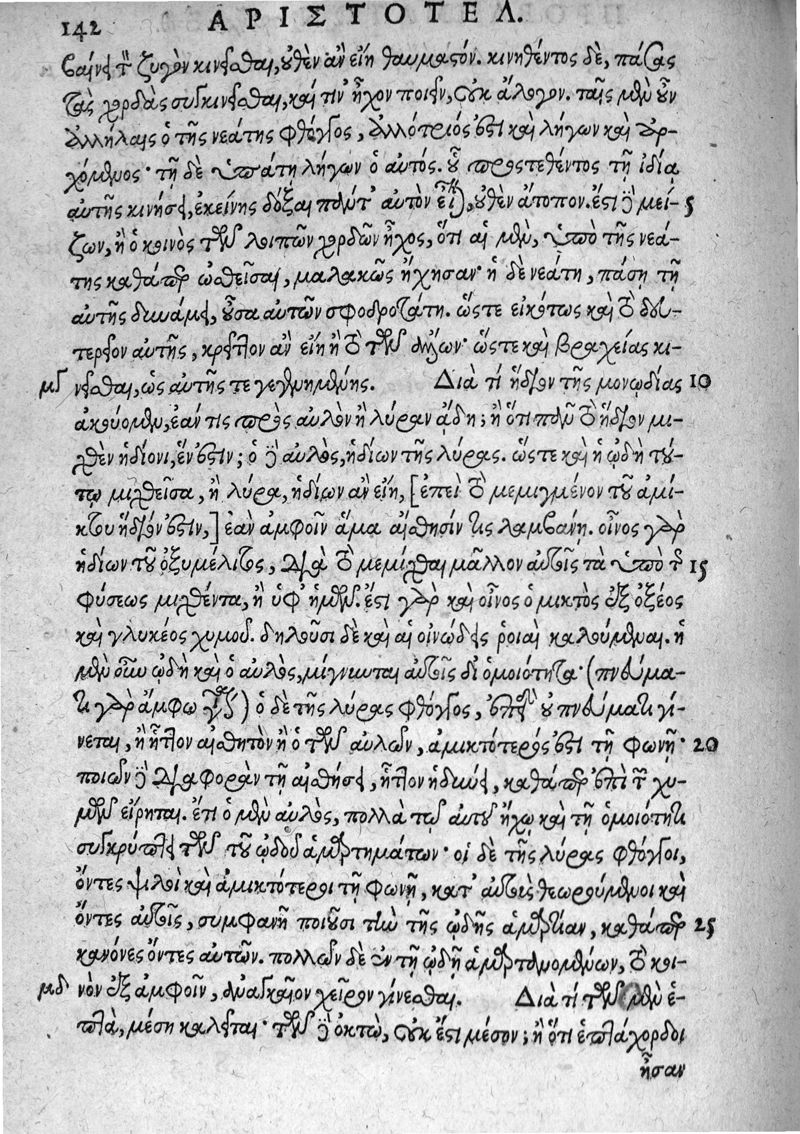 142 ΑΡΙΣΤΟΤΕΛ.
βαίνει τὸ ζυγὸν κινεῖσθαι, οὐθὲν ἂν εἴη θαυμαστόν. κινηθέντος δὲ, πάσας
τὰς χορδὰς συγκινεῖσθαι, καί τιν' ἦχον ποιεῖν, οὐκ ἄλογον. ταῖς μὲν οὖν
ἀλλήλαις ὁ τῆς νεάτης φθόγγος, ἀλλότριός ἐστι καὶ λήγων καὶ ἀρ-
χόμενος· τῇ δὲ ὑπάτῃ λήγων ὁ αὐτός. οὗ προστεθέντος τῇ ἰδίᾳ
αὐτῆς κινήσει, ἐκείνης δόξαι παντ' αὐτὸν εἶναι, οὐθὲν ἄτοπον. ἔσται δὲ μεί- 5
ζων, ἢ ὁ κοινὸς τῶν λοιπῶν χορδῶν ἦχος, ὅτι αἱ μὲν, ὑπὸ τῆς νεά-
της καθάπερ ὠσθεῖσαι, μαλακῶς ἤχησαν· ἡ δὲ νεάτη, πάσῃ τῇ
αὐτῆς δυνάμει, οὖσα αὐτῶν σφοδροτάτη. ὥστε εἰκότως καὶ τὸ δεύ-
τερεῖον αὐτῆς, κρεῖττον ἂν εἴη ἢ τὸ τῶν ἄλλων· ὥστε καὶ βραχείας κι-
μγ νεῖσθαι, ὡς αὐτῆς τε γεγενημένης. Διὰ τί ἥδιον τῆς μονῳδίας 10
ἀκούομεν, ἐάν τις πρὸς αὐλὸν ἢ λύραν ᾄδῃ; ἢ ὅτι πᾶν τὸ ἥδιον μι-
χθὲν ἡδίονι, ἕν ἐστιν; ὁ δὲ αὐλὸς, ἡδίων τῆς λύρας. ὥστε καὶ ἡ ᾠδὴ τού-
τῳ μιχθεῖσα, ἢ λύρᾳ, ἡδίων ἂν εἴη, [ἐπεὶ τὸ μεμιγμένον τοῦ ἀμί-
κτου ἥδιόν ἐστιν,] ἐὰν ἀμφοῖν ἅμα αἴσθησίν τις λαμβάνῃ. οἶνος γὰρ
ἡδίων τοῦ ὀξυμέλιτος, διὰ τὸ μεμίχθαι μᾶλλον αὑτοῖς τὰ ὑπὸ τῆς 15
φύσεως μιχθέντα, ἢ ὑφ' ἡμῶν. ἔστι γὰρ καὶ οἶνος ὁ μικτὸς ἐξ ὀξέος
καὶ γλυκέος χυμοῦ. δηλοῦσι δὲ καὶ αἱ οἰνώδεις ῥοιαὶ καλούμεναι. ἡ
μὲν οὖν ᾠδὴ καὶ ὁ αὐλὸς, μίγνυνται αὑτοῖς δι' ὁμοιότητα· (πνεύμα-
τι γὰρ ἄμφω γίνεται) ὁ δὲ τῆς λύρας φθόγγος, ἐπειδὴ οὐ πνεύματι γί-
νεται, ἢ ἧττον αἰσθητὸν ἢ ὁ τῶν αὐλῶν, ἀμικτότερός ἐστι τῇ φωνῇ· 20
ποιῶν δὲ διαφορὰν τῇ αἰσθήσει, ἧττον ἡδύνει, καθάπερ ἐπὶ τῶν χυ-
μῶν εἴρηται. ἔτι ὁ μὲν αὐλὸς, πολλὰ τῷ αὑτοῦ ἤχῳ καὶ τῇ ὁμοιότητι
συγκρύπτει τῶν τοῦ ᾠδοῦ ἁμαρτημάτων· οἱ δὲ τῆς λύρας φθόγγοι,
ὄντες ψιλοὶ καὶ ἀμικτότεροι τῇ φωνῇ, κατ' αὑτοὺς θεωρούμενοι καὶ
ὄντες αὑτοῖς, συμφανῆ ποιοῦσι τὴν τῆς ᾠδῆς ἁμαρτίαν, καθάπερ 25
κανόνες ὄντες αὐτῶν. πολλῶν δὲ ἐν τῇ ᾠδῇ ἁμαρτανομένων, τὸ κοι-
μδ νὸν ἐξ ἀμφοῖν, ἀναγκαῖον χεῖρον γίνεσθαι. Διὰ τί τῶν μὲν ἑ-
πτὰ, μέση καλεῖται· τῶν δὲ ὀκτὼ, οὐκ ἔστι μέσον; ἢ ὅτι ἑπτάχορδοι
ἦσαν